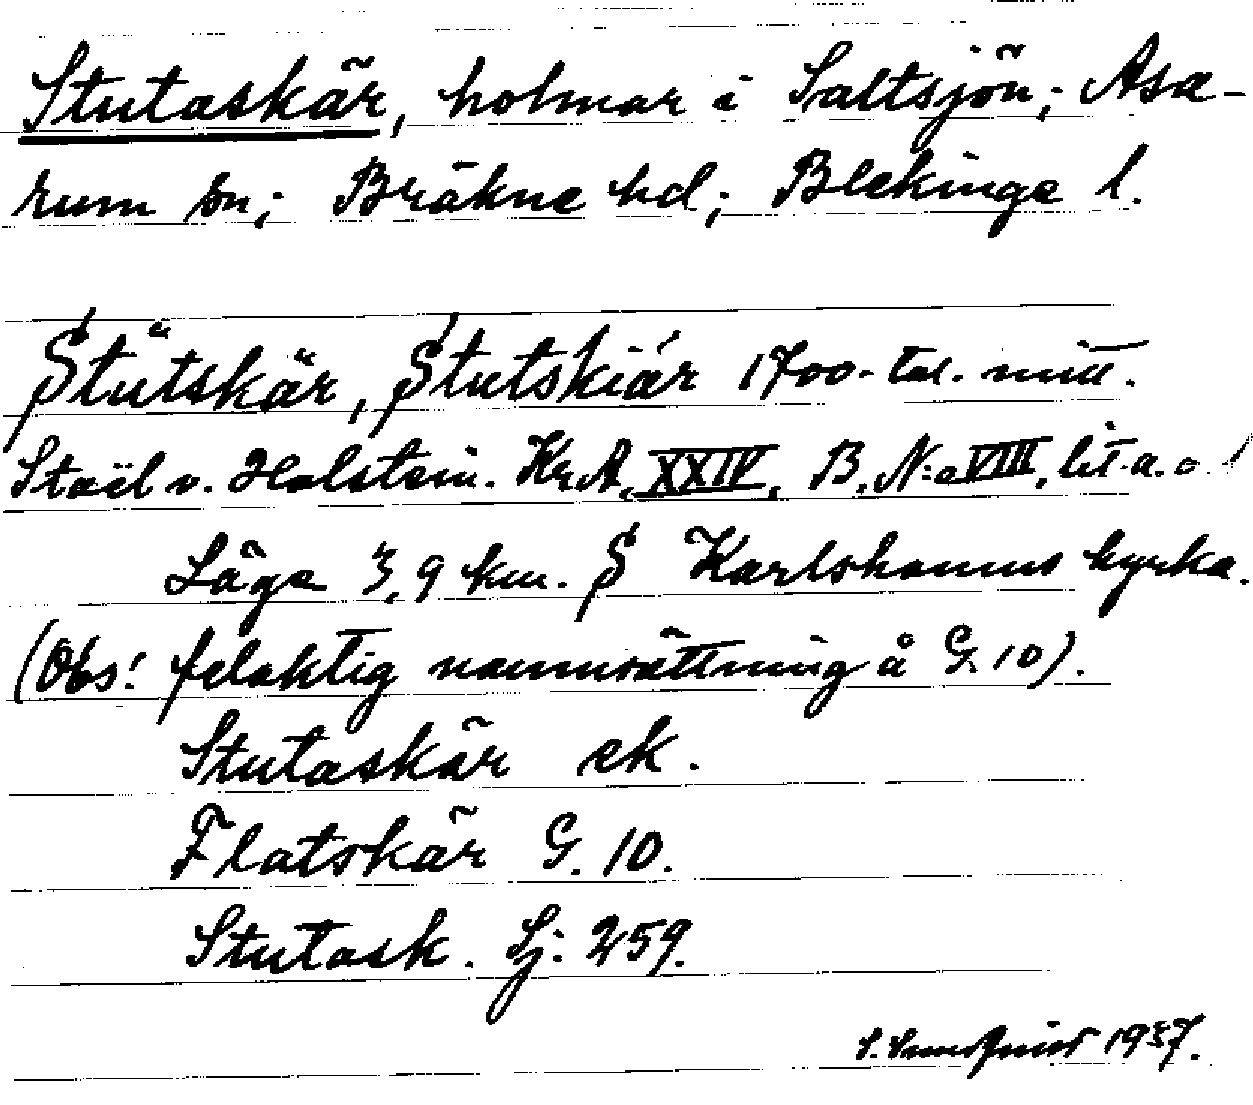 Stutaskär, holmar i Saltsjön; Asa-
rum sn; Bräkne hd; Blekinge l.
Stůtskär, Stutskiär 1700-tal. mitt.
Staël v. Holstein. Kr.A. XXIV, B. N:o VIII, lit. a. o.
Läge 3,9 km. S Karlshamns kyrka.
(Obs! felaktig namnsättning å G. 10).
Stutaskär ek.
Flatskär G. 10.
Stutask. Sj. 259.
S. 1937.